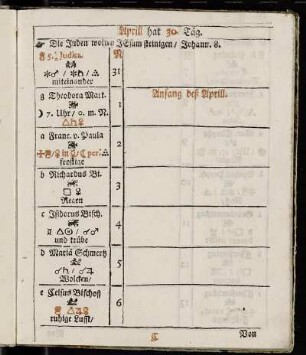 Aprill hat 30. Tag.
Die Juden wolten JEsum steinigen / Johann. 8.
F 5. Judica. N
☌♂ / ✱♄ / △ 31
miteinander
g Theodora Mart. Anfang deß Aprill.
☽ 7. Uhr / 0. m. N. 1
△♄☿
a Franc. v. Paula 2
frostige
b Richardus Bi. 3
□ ☿
Regen
c Isidorus Bisch. 4
und trübe
d Mariä Schmertz 5
☌♄ / ☌♃
Wolcken /
e Celsus Bischoff 6
ruhige Lufft /
C Von